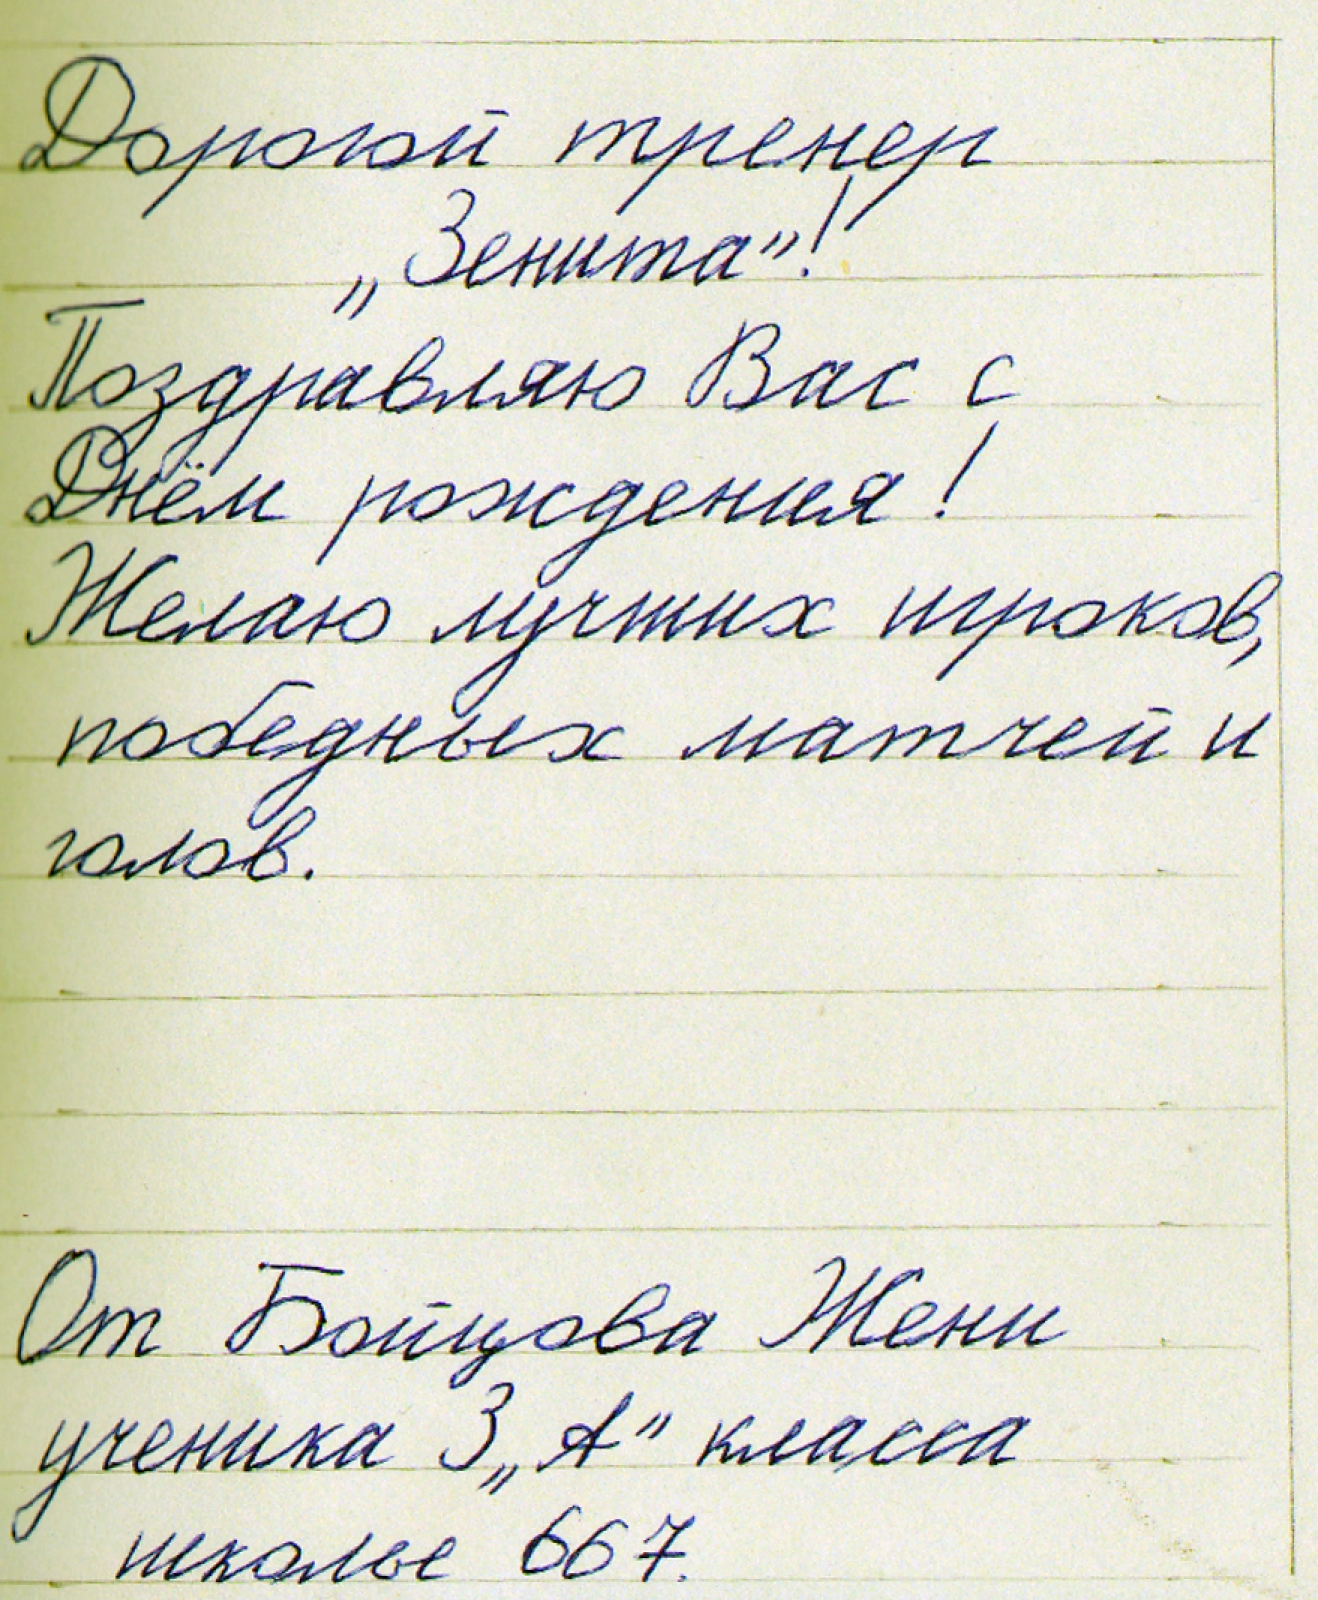 Дорогой тренер
„Зенита”!
Поздравляю Вас с
Днём рождения!
Желаю лучших игроков,
победных матчей и
голов.
От Бойцова Жени
ученика 3„А” класса
школы 667.